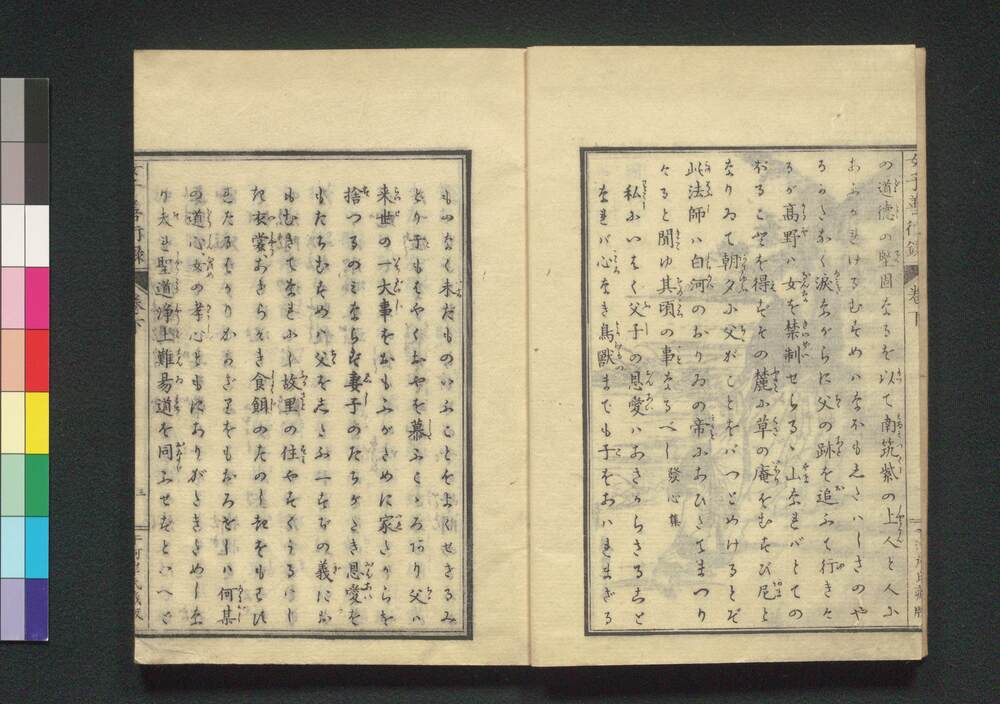 の道徳の堅固なるを以て南筑紫の上人と人に
あふがれけるむすめはなほもしたはしさのや
るかたなく涙ながらに父の跡を追ふて行きた
るが高野は女を禁制せらるゝ山なればとての
ぼることを得ずその麓に草の庵をむすび尼と
なりゐて朝夕に父がことをばつとめけるとぞ
此法師は白河のおりゐの帝におひたてまつり
たると聞ゆ其頃の事なるべし 發心集
私にいはく父子の恩愛はあさからざること
なれば心なき鳥獸までも子をおはれまざる
もなく未だものいふことをよくせざるみ
どり子もはやくおやを慕ふところあり父は
来世の一大事をおもふがために家たからを
捨つるのみならず妻子のたちがたき恩愛を
もたちむすめは父をしたふ一すぢの義にお
もむきてなれにし故里の住やすくうるはし
き衣裳あきらけき食餌のたのしきをもひ
れたるなりかゝ なをもおろそし何某
の道心女の孝心ともにありがたきためしな
り夫れ聖道浄土難易道を同ふせずといへど
女子善行録 巻下